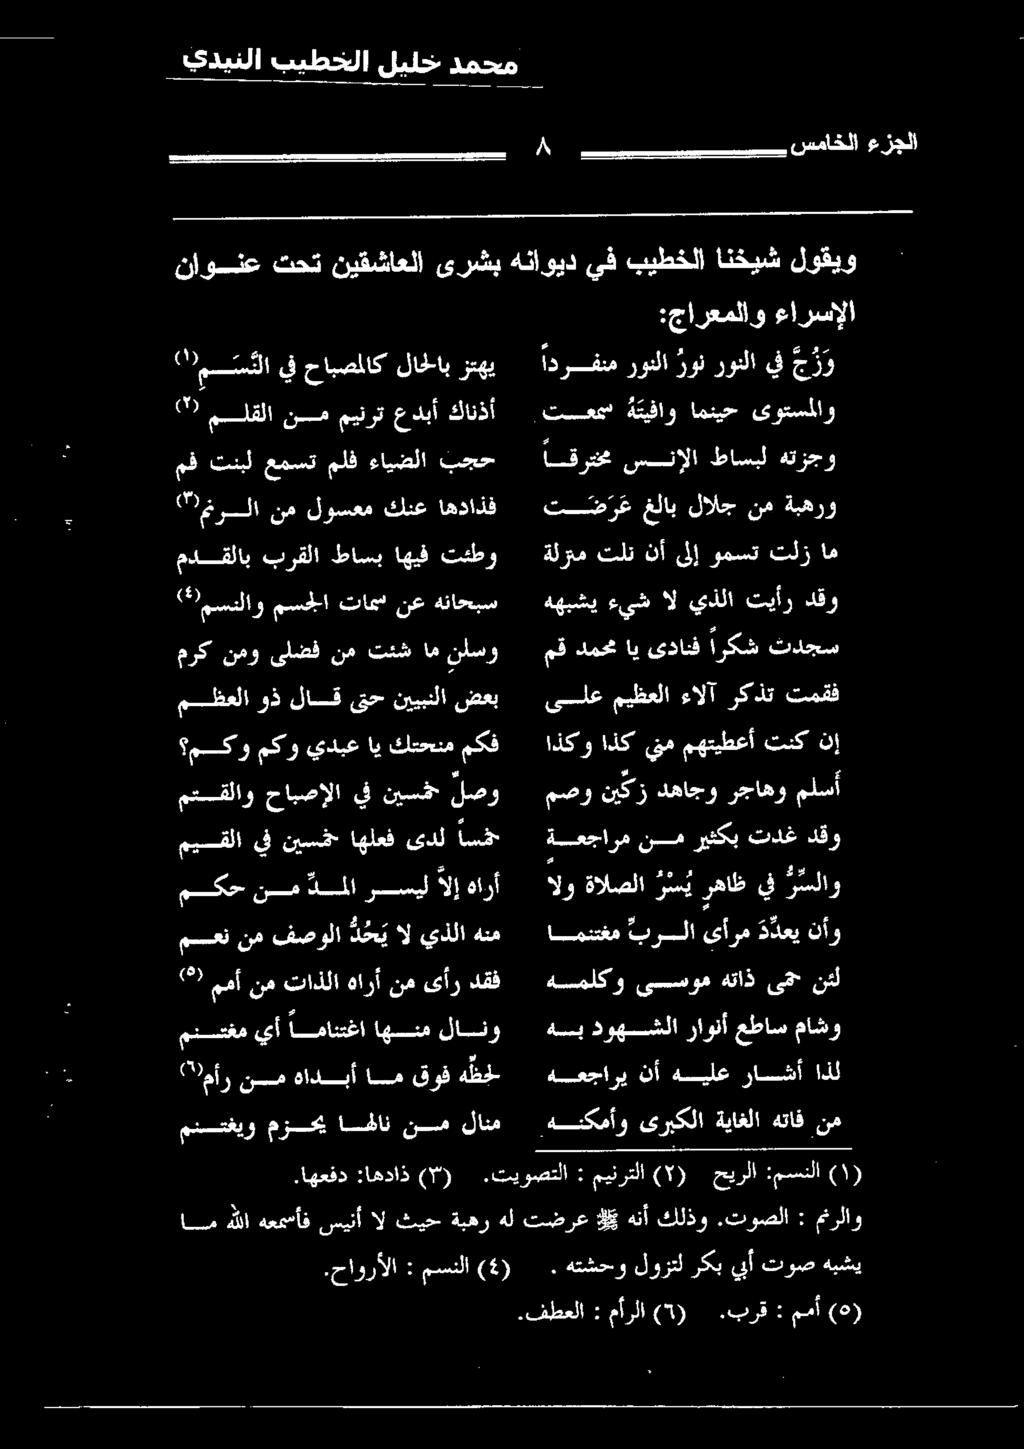 محمد خليل الخطيب النيدي
الجزء الخامس ٨
ويقول شيخنا الخطيب في ديوانه بشرى العاشقين تحت عنوان
الإسراء والمعراج:
وَزُجَّ في النور نورُ النور منفرداً يهتز بالحال كالمصباح في النَّسَمِ(١)
والمستوى حينما وافيتَهُ سمعت أذناك أبدع ترنيم من القلم(٢)
وجزته لبساط الإنس مخترقاً حجب الضياء فلم تسمع لبنت فم
ورهبة من جلال بالغ عَرَضَت فذادها عنك معسول من الرنم(٣)
ما زلت تسمو إلى أن نلت منزلة وطئت فيها بساط القرب بالقدم
وقد رأيت الذي لا شيء يشبهه سبحانه عن سمات الجسم والنسم(٤)
سجدت شكراً فنادى يا محمد قم وسلنِ ما شئت من فضلى ومن كرم
فقمت تذكر آلاء العظيم على بعض النبيين حتى قال ذو العظم
إن كنت أعطيتهم مني كذا وكذا فكم منحتك يا عبدي وكم وكم؟
أسلم وهاجر وجاهد زكّين وصم وصلِّ خمسين في الإصباح والقتم
وقد غدت بكثير من مراجعة خمساً لدى فعلها خمسين في القيم
والسِّرُّ في ظاهرٍ يُسْرُ الصلاة ولاً أراه إلاَّ ليسر المدِّ من حكم
وأن يعدِّدَ مرأى الربِّ مغتنما منه الذي لا يَحُدُّ الوصف من نعم
لئن حمى ذاته موسى وكلمه فقد رأى من أراه الذات من أمم (٥)
وشام ساطع أنوار الشهود به ونال منها اغتناماً أي مغتنم
لذا أشار عليه أن يراجعه لحظِّه فوق ما أبداه من رأم(٦)
من فاته الغاية الكبرى وأمكنه منال من نالها يحزم ويغتنم
(١) النسم: الريح (٢) الترنيم : التصويت. (٣) ذادها: دفعها.
والرنم : الصوت. وذلك أنه ﷺ عرضت له رهبة حيث لا أنيس فأسمعه الله ما
يشبه صوت أبي بكر لتزول وحشته . (٤) النسم : الأرواح.
(٥) أمم : قرب. (٦) الرأم : العطف.